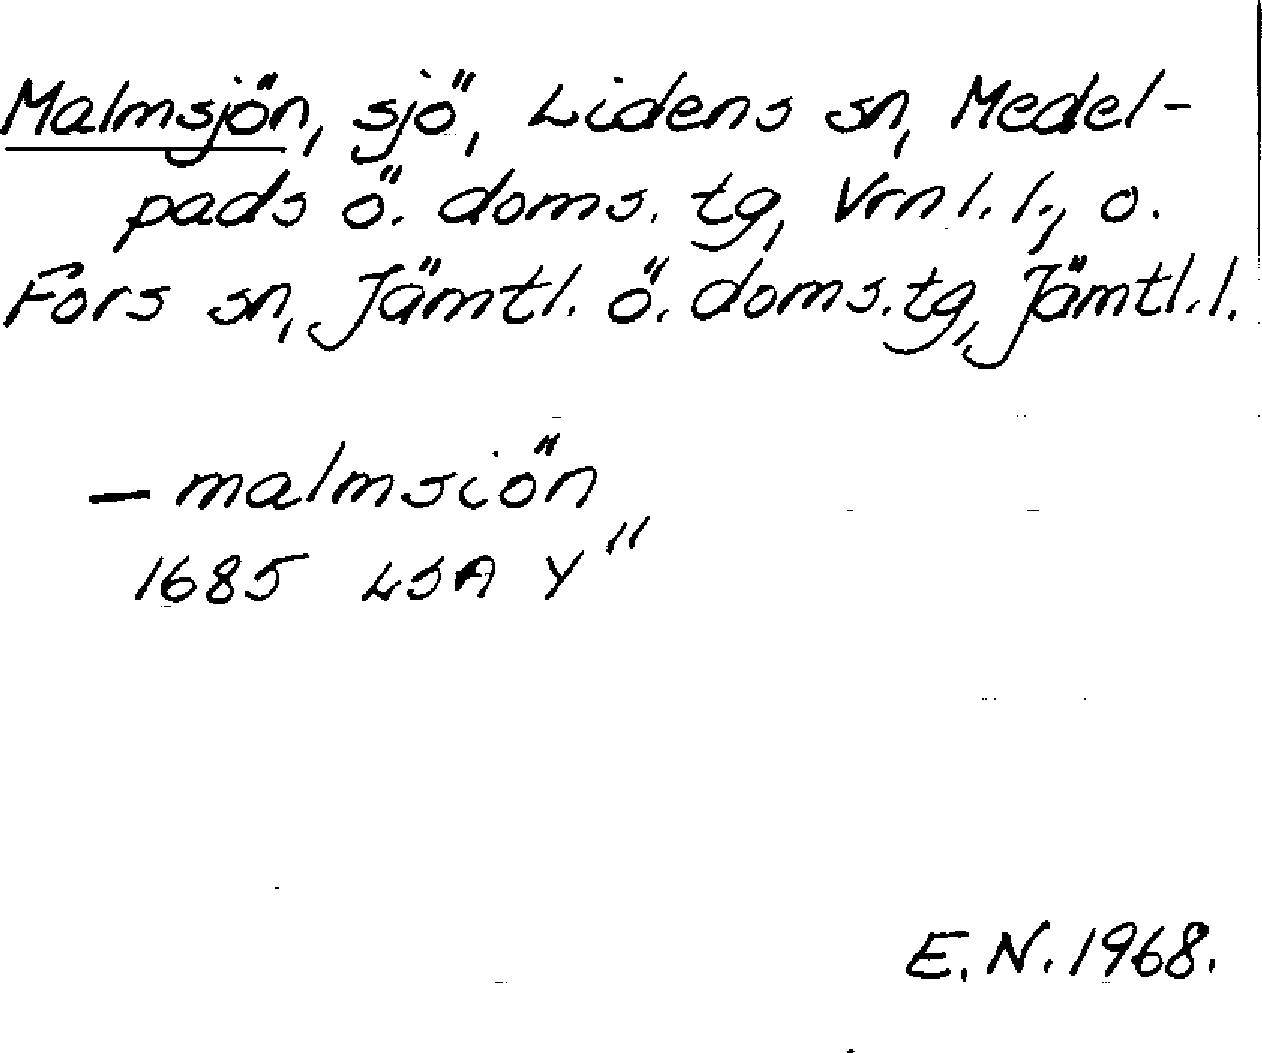 Malmsjön, sjö, Lidens sn, Medel-
pads ö. doms. tg, Vrnl. l., o.
Fors sn, Jämtl. ö. doms. tg, Jämtl. l.
— malmsiön
1685 LSA Y"
E. N. 1968.